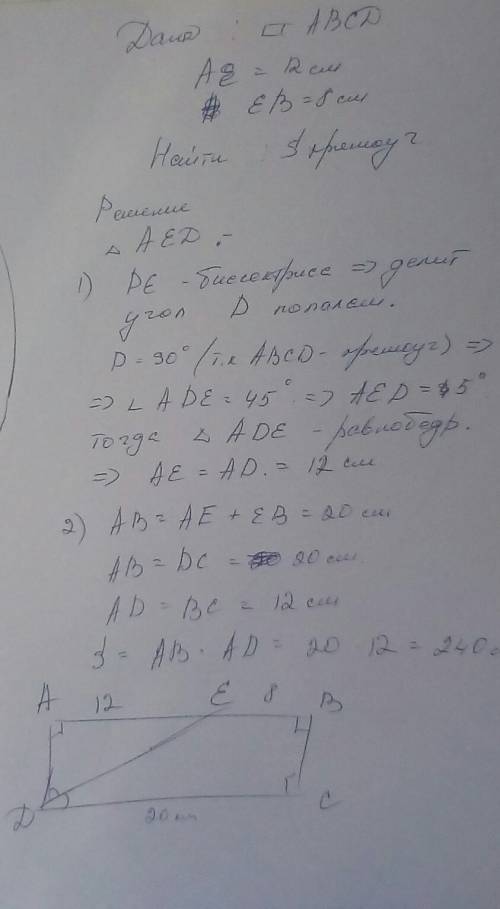 Дано : □ ABCD
AE = 12 см
EB = 8 см
Найти : S прямоуг
Решение
△ AED :-
1) DE - биссектрисе => делит
угол D пополам.
D = 90° (т.к ABCD - прямоуг) =>
=> ∠ ADE = 45° => AED = 45°
тогда △ ADE - равнобедр.
=> AE = AD. = 12 см
2) AB = AE + EB = 20 см
AB = DC = 20 см
AD = BC = 12 см
S = AB · AD = 20 12 = 240
A 12 E 8 B
D 20 см C